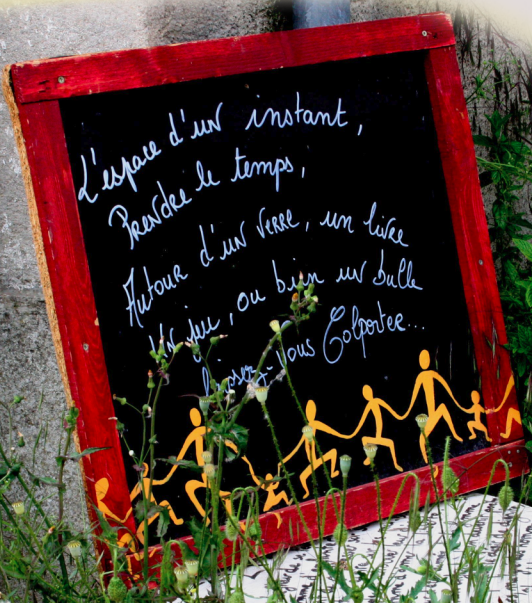 L'espace d'un instant,
Prendre le temps,
Autour d'un verre, un livre
Un jeu, ou bien un bulle
laissez-vous Colporter...